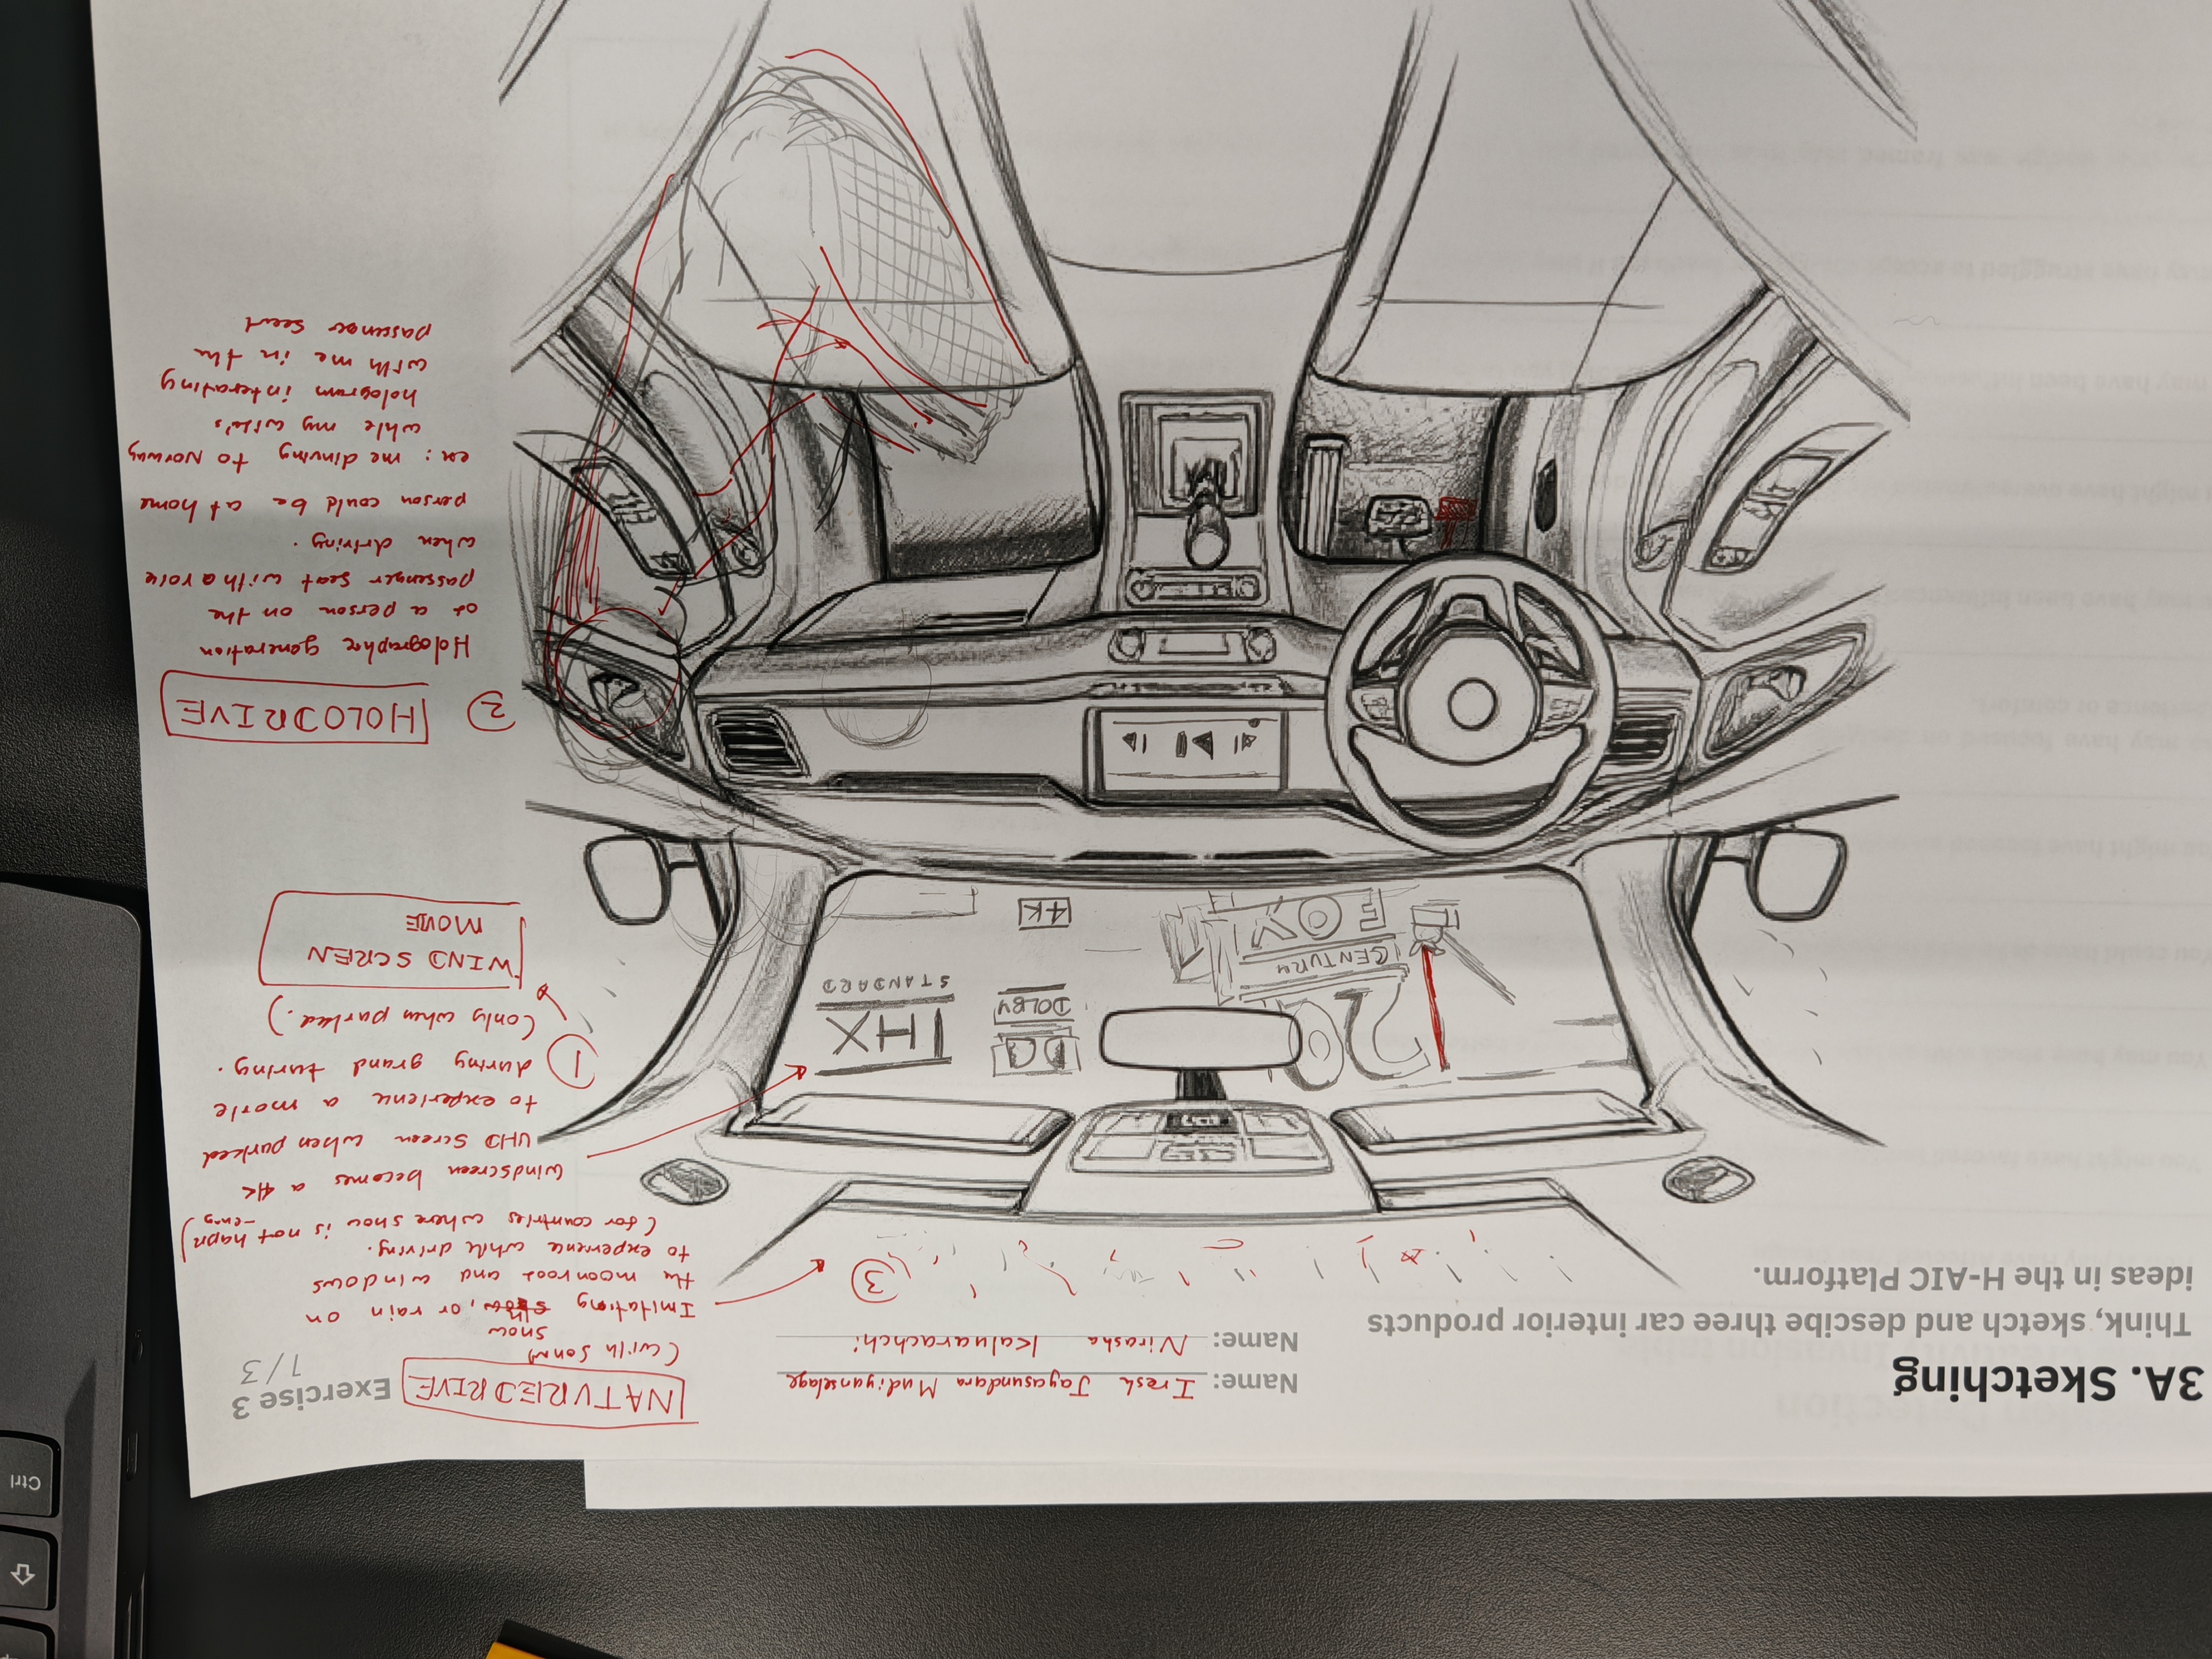 3A. Sketching
Think, sketch and descibe three car interior products
ideas in the H-AIC Platform.
Name: Iresh Jayasundara Mudiyanselage
Name: Nirasha Kaluarachchi
Exercise 3
1/3
NATUREDRIVE
(with sonn)
snow
Imitating snow, or rain on
the moonroof and windows
to experience while driving.
(for countries where snow is not hapn
-eng)
3
windscreen becomes a 4K
UHD Screen when parked
to experience a movie
during grand turing.
(only when parked.)
1
WIND SCREN
MOVIE
20
CENTURY
FOX
DOLBY
THX
STANDARD
4K
2
HOLODRIVE
Holographic generation
of a person on the
passenger seat with a voice
when driving.
person could be at home
ex: me dinving to Norway
while my wife's
hologram interating
with me in the
passenger seat
Ctrl